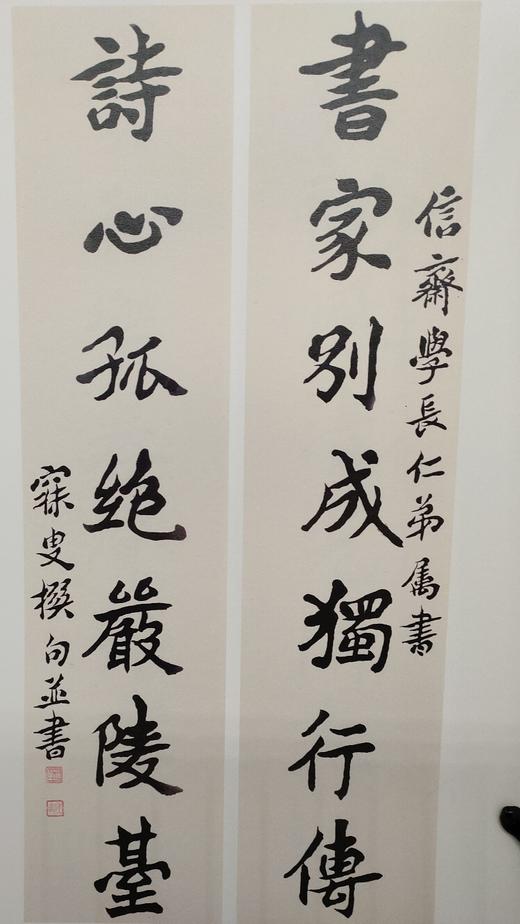 信齋學長仁弟属書
書家別成獨行傳
詩心孤絶嚴陵臺
寐叟撰句並書